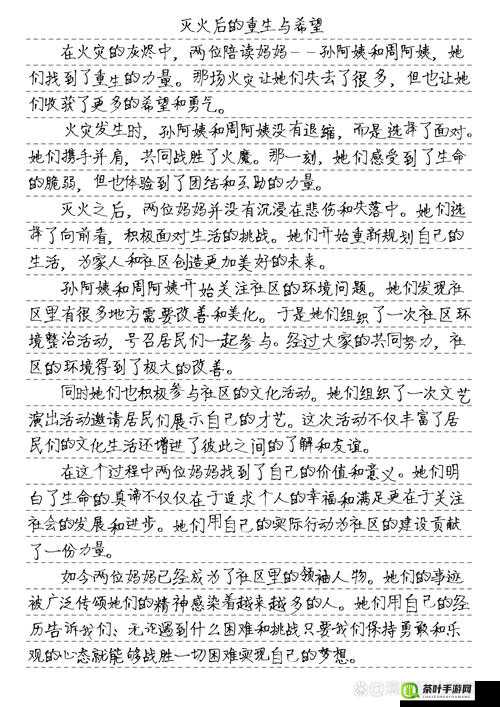 灭火后的重生与希望
在火灾的灰烬中，两位陪读妈妈--孙阿姨和周阿姨，她
们找到了重生的力量。那场火灾让她们失去了很多，但也让她
们收获了更多的希望和勇气。
火灾发生时，孙阿姨和周阿姨没有退缩，而是选择了面对。
她们携手并肩，共同战胜了火魔。那一刻，她们感受到了生命
的脆弱，但也体验到了团结和互助的力量。
灭火之后，两位妈妈并没有沉浸在悲伤和失落中。她们选
择了向前看，积极面对生活的挑战。她们开始重新规划自己的
生活，为家人和社区创造更加美好的未来。
孙阿姨和周阿姨开始关注社区的环境问题。她们发现社
区里有很多地方需要改善和美化。于是她们组织了一次社区环
境整治活动，号召居民们一起参与。经过大家的共同努力，社
区的环境得到了极大的改善。
同时她们也积极参与社区的文化活动。她们组织了一次文艺
演出活动邀请居民们展示自己的才艺。这次活动不仅丰富了居
民们的文化生活还增进了彼此之间的了解和友谊。
在这个过程中两位妈妈找到了自己的价值和意义。她们明
白了生命的真谛不仅仅在于追求个人的幸福和满足更在于关注
社会的发展和进步。她们用自己的实际行动为社区的建设贡献
了一份力量。
如今两位妈妈已经成为了社区里的领袖人物。她们的事迹
被广泛传颂她们的精神感染着越来越多的人。她们用自己的经
历告诉我们：无论遇到什么困难和挑战只要我们保持勇敢和乐
观的心态就能够战胜一切困难实现自己的梦想。
茶叶手游网